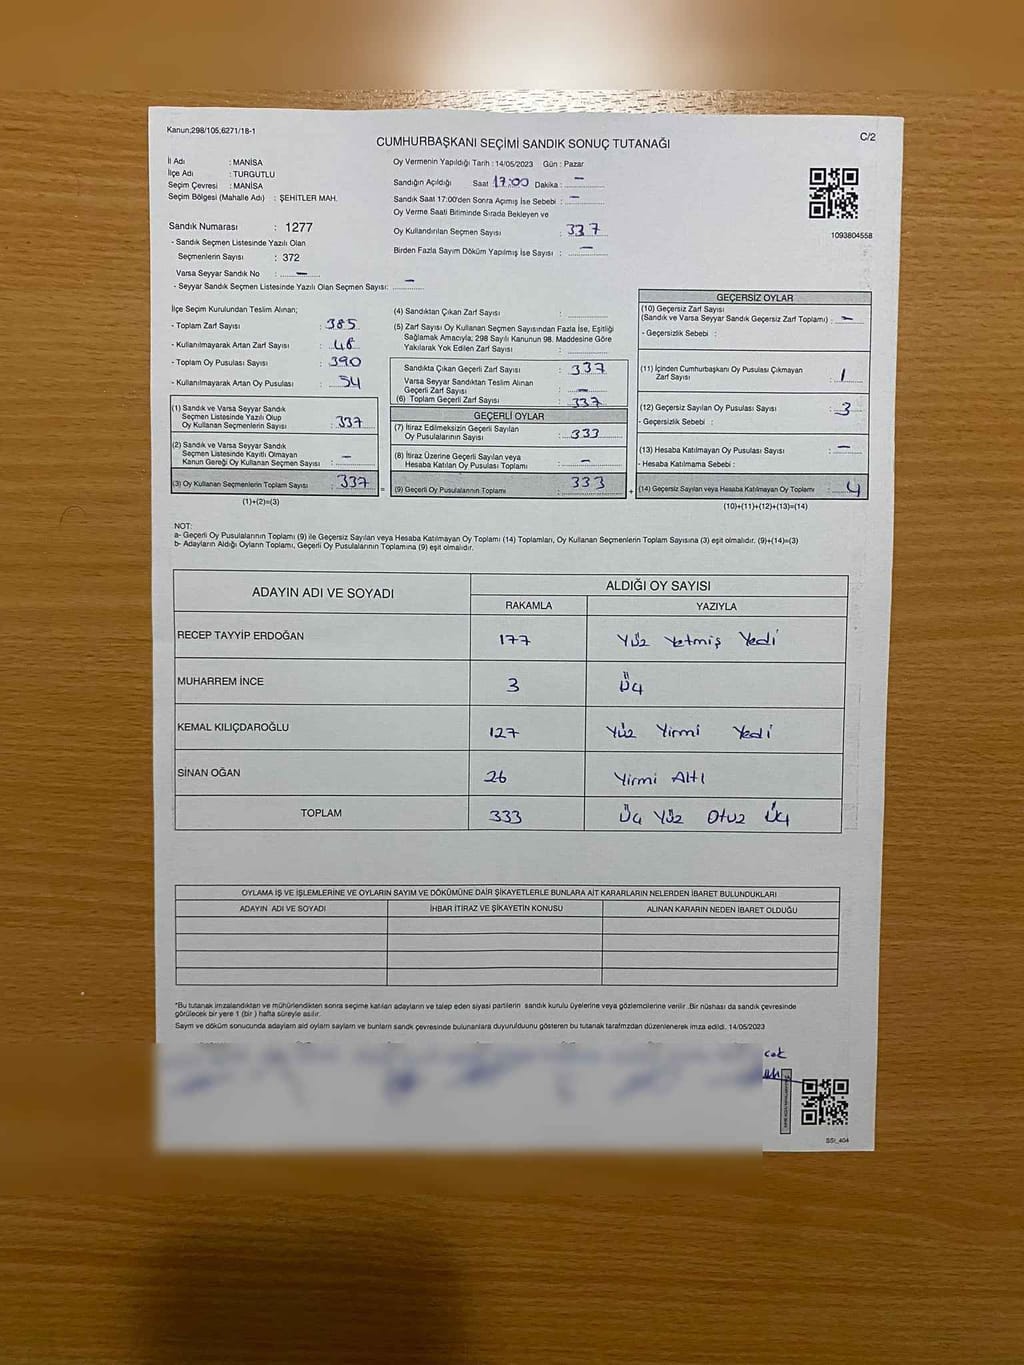 Kanun;298/105;6271/18-1
C/2
CUMHURBAŞKANI SEÇİMİ SANDIK SONUÇ TUTANAĞI
İl Adı : MANİSA
İlçe Adı : TURGUTLU
Seçim Çevresi : MANİSA
Seçim Bölgesi (Mahalle Adı) : ŞEHİTLER MAH.
Sandık Numarası : 1277
- Sandık Seçmen Listesinde Yazılı Olan
Seçmenlerin Sayısı : 372
Varsa Seyyar Sandık No : —
- Seyyar Sandık Seçmen Listesinde Yazılı Olan Seçmen Sayısı: —
Oy Vermenin Yapıldığı Tarih : 14/05/2023 Gün : Pazar
Sandığın Açıldığı Saat 17:00 Dakika : —
Sandık Saat 17:00'den Sonra Açımış İse Sebebi : —
Oy Verme Saati Bitiminde Sırada Bekleyen ve
Oy Kullandırılan Seçmen Sayısı : 337
Birden Fazla Sayım Döküm Yapılmış İse Sayısı : —
1093804558
İlçe Seçim Kurulundan Teslim Alınan;
- Toplam Zarf Sayısı : 385
- Kullanılmayarak Artan Zarf Sayısı : 48
- Toplam Oy Pusulası Sayısı : 390
- Kullanılmayarak Artan Oy Pusulası : 54
(1) Sandık ve Varsa Seyyar Sandık
Seçmen Listesinde Yazılı Olup
Oy Kullanan Seçmenlerin Sayısı : 337
(2) Sandık ve Varsa Seyyar Sandık
Seçmen Listesinde Kayıtlı Olmayan
Kanun Gereği Oy Kullanan Seçmen Sayısı : —
(3) Oy Kullanan Seçmenlerin Toplam Sayısı : 337
(1)+(2)=(3)
(4) Sandıktan Çıkan Zarf Sayısı :
(5) Zarf Sayısı Oy Kullanan Seçmen Sayısından Fazla İse, Eşitliği
Sağlamak Amacıyla; 298 Sayılı Kanunun 98. Maddesine Göre
Yakılarak Yok Edilen Zarf Sayısı :
Sandıkta Çıkan Geçerli Zarf Sayısı : 337
Varsa Seyyar Sandıktan Teslim Alınan
Geçerli Zarf Sayısı : —
(6) Toplam Geçerli Zarf Sayısı : 337
GEÇERLİ OYLAR
(7) İtiraz Edilmeksizin Geçerli Sayılan
Oy Pusulalarının Sayısı : 333
(8) İtiraz Üzerine Geçerli Sayılan veya
Hesaba Katılan Oy Pusulası Toplamı : —
(9) Geçerli Oy Pusulalarının Toplamı : 333
GEÇERSİZ OYLAR
(10) Geçersiz Zarf Sayısı
(Sandık ve Varsa Seyyar Sandık Geçersiz Zarf Toplamı) : —
- Geçersizlik Sebebi :
(11) İçinden Cumhurbaşkanı Oy Pusulası Çıkmayan
Zarf Sayısı : 1
(12) Geçersiz Sayılan Oy Pusulası Sayısı : 3
- Geçersizlik Sebebi :
(13) Hesaba Katılmayan Oy Pusulası Sayısı : —
- Hesaba Katılmama Sebebi :
(14) Geçersiz Sayılan veya Hesaba Katılmayan Oy Toplamı : 4
(10)+(11)+(12)+(13)=(14)
NOT:
a- Geçerli Oy Pusulalarının Toplamı (9) ile Geçersiz Sayılan veya Hesaba Katılmayan Oy Toplamı (14) Toplamları, Oy Kullanan Seçmenlerin Toplam Sayısına (3) eşit olmalıdır. (9)+(14)=(3)
b- Adayların Aldığı Oyların Toplamı, Geçerli Oy Pusulalarının Toplamına (9) eşit olmalıdır.
ADAYIN ADI VE SOYADI ALDIĞI OY SAYISI
RAKAMLA YAZIYLA
RECEP TAYYİP ERDOĞAN 177 Yüz Yetmiş Yedi
MUHARREM İNCE 3 Üç
KEMAL KILIÇDAROĞLU 127 Yüz Yirmi Yedi
SİNAN OĞAN 26 Yirmi Altı
TOPLAM 333 Üç Yüz Otuz Üç
OYLAMA İŞ VE İŞLEMLERİNE VE OYLARIN SAYIM VE DÖKÜMÜNE DAİR ŞİKAYETLERLE BUNLARA AİT KARARLARIN NELERDEN İBARET BULUNDUKLARI
ADAYIN ADI VE SOYADI İHBAR İTİRAZ VE ŞİKAYETİN KONUSU ALINAN KARARIN NEDEN İBARET OLDUĞU
*Bu tutanak imzalandıktan ve mühürlendikten sonra seçime katılan adayların ve talep eden siyasi partilerin sandık kurulu üyelerine veya gözlemcilerine verilir .Bir nüshası da sandık çevresinde
görülecek bir yere 1 (bir ) hafta süreyle asılır.
Sayım ve döküm sonucunda adayların aldığı oyların sayıları ve bunların sandık çevresinde bulunanlara duyurulduğunu gösteren bu tutanak tarafımızdan düzenlenerek imza edildi. 14/05/2023
SSt_404